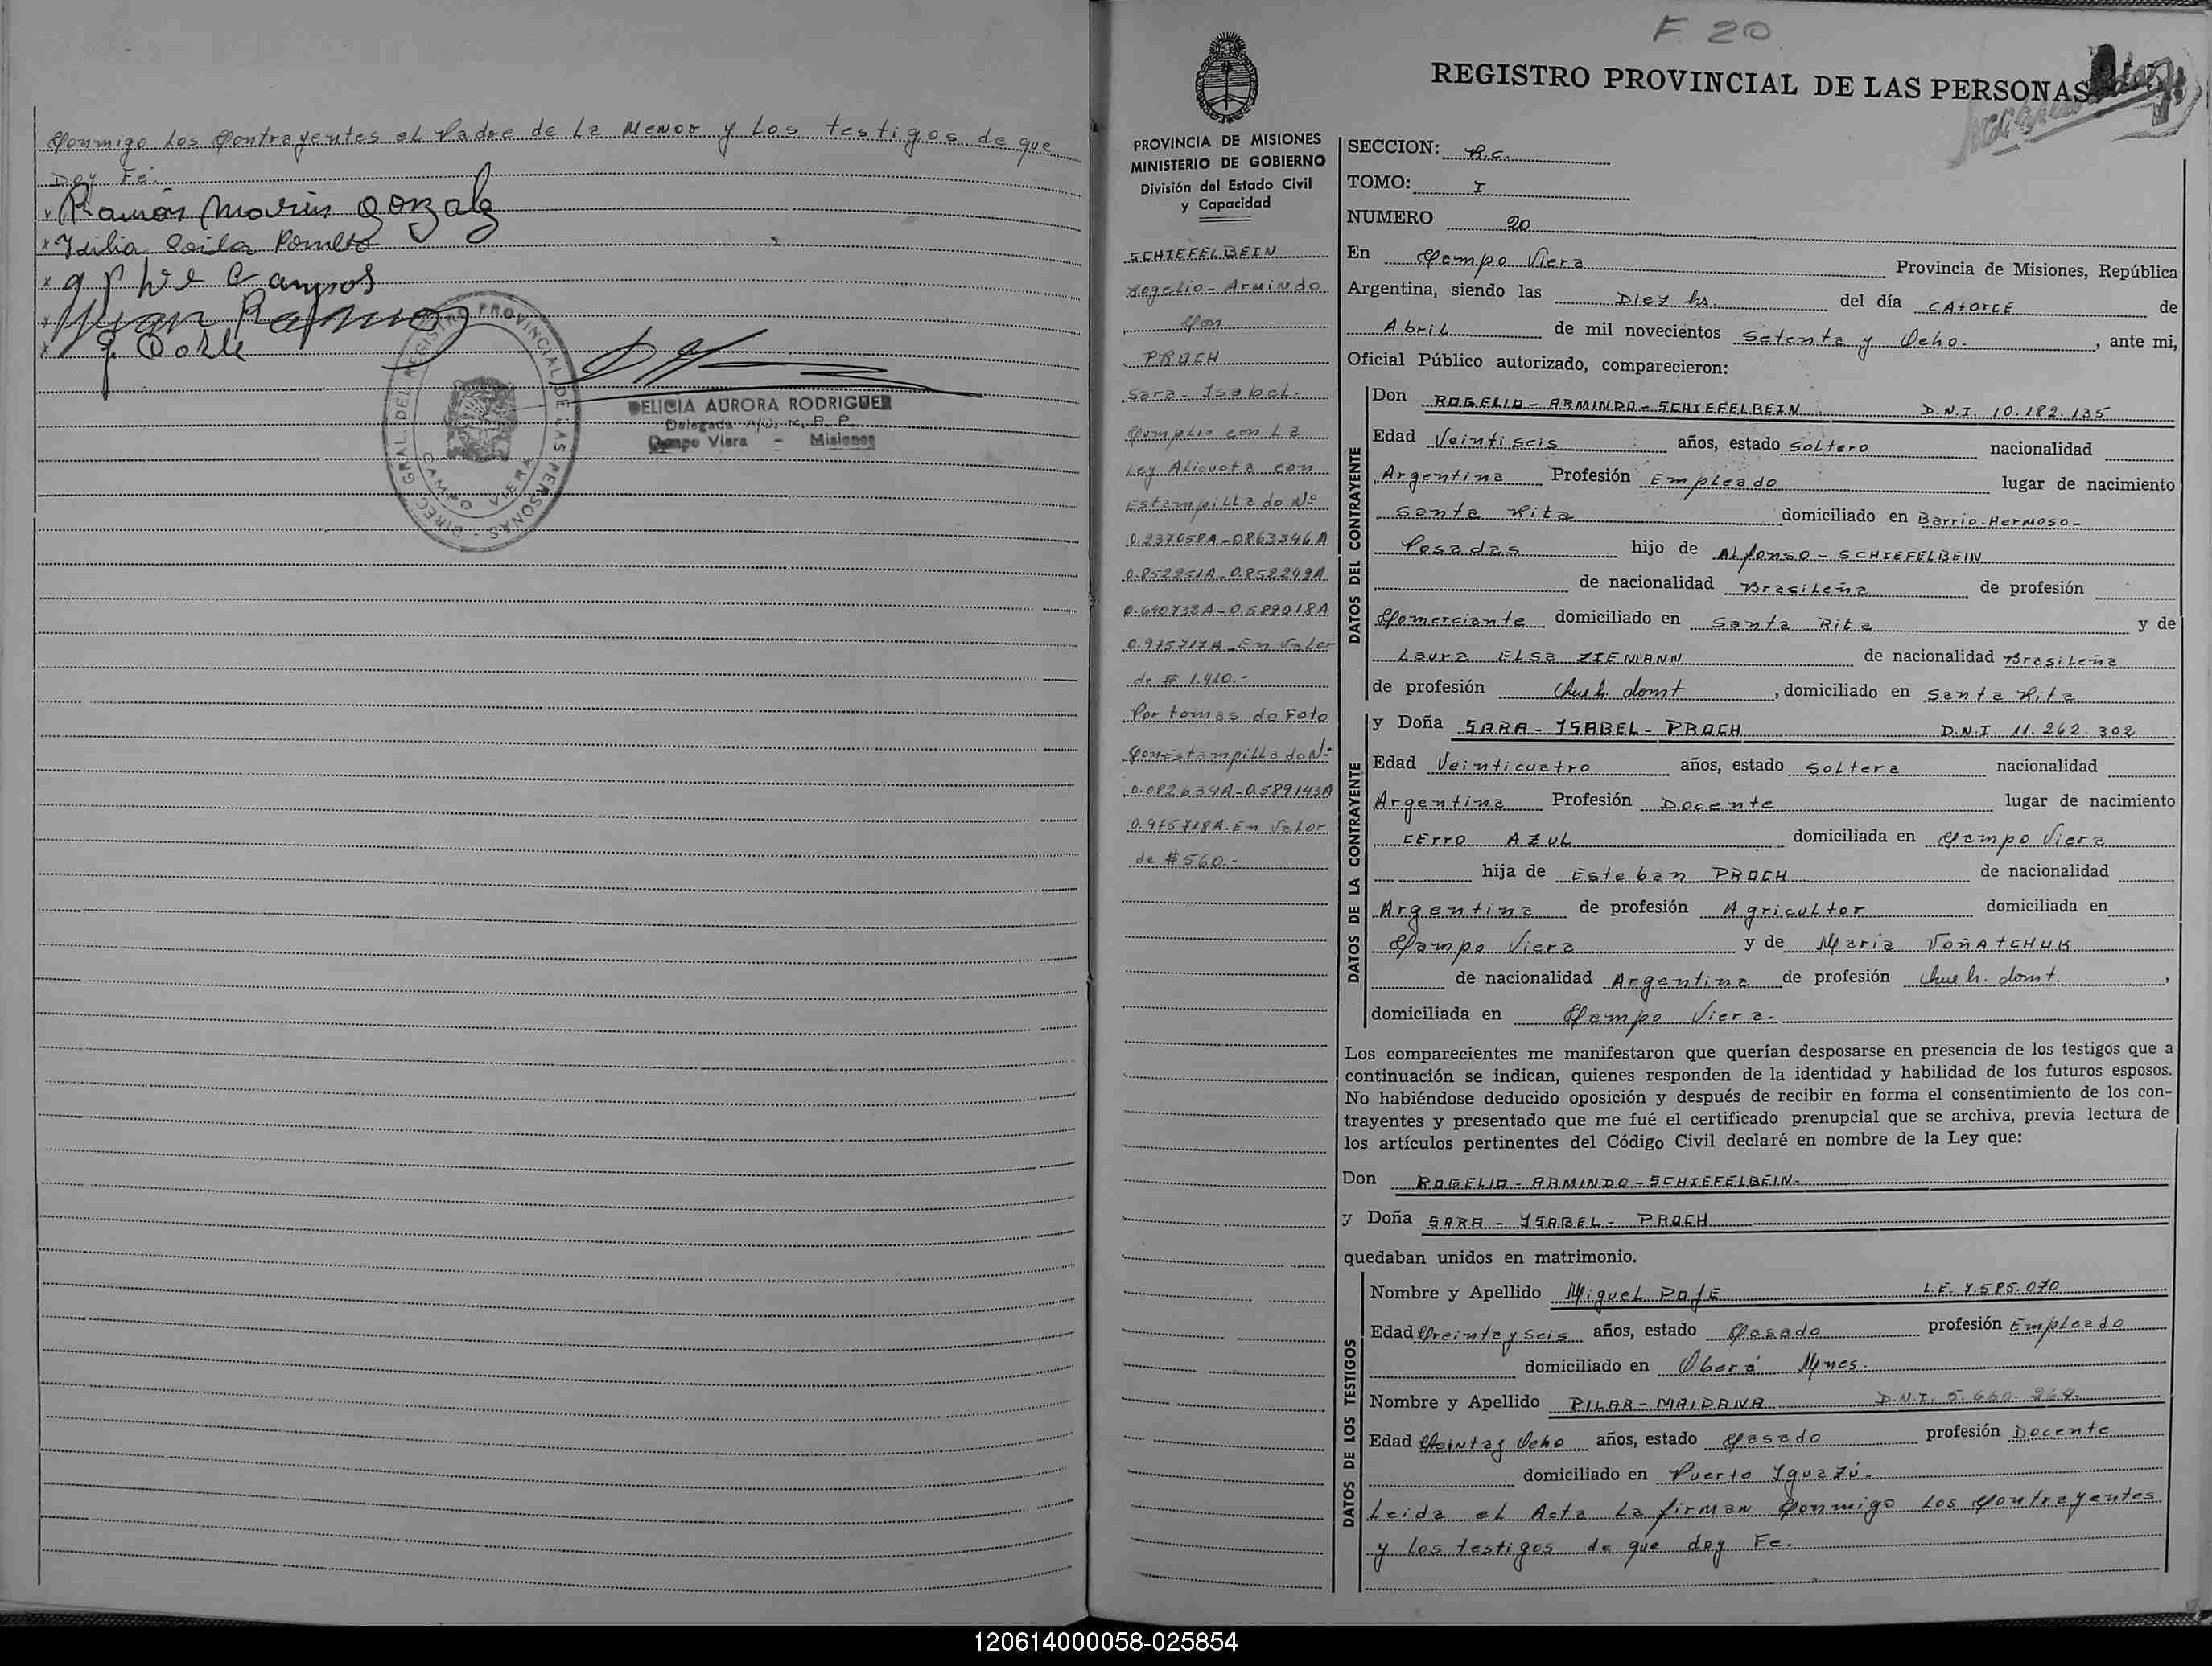 Conmigo Los Contrayentes el Padre de La Menor y Los testigos de que
Doy Fé.
Ramón
DIREC. GRAL. DEL REGISTRO PROVINCIAL DE LAS PERSONAS
CAMPO VIERA
DELICIA AURORA RODRIGUEZ
Delegada A/C. R. P. P.
Campo Viera - Misiones
F 20
REGISTRO PROVINCIAL DE LAS PERSONAS
PROVINCIA DE MISIONES
MINISTERIO DE GOBIERNO
División del Estado Civil
y Capacidad
SCHIEFELBEIN
Rogelio - Armindo
Con
PROCH
Sara - Ysabel.
Cumplio con La
Ley Alicuota con
Estampillado Nº
0.237058A - 0863346A
0.852251A - 0.852249A
0.690732A - 0.589018A
0.975717A - En Valor
de $ 1.910.-
Por tomas de Foto
Con Estampillado Nº
0.082634A - 0.589143A
0.975718A. En Valor
de $ 560.-
SECCION: R.C.
TOMO: I
NUMERO 20
En Campo Viera Provincia de Misiones, República
Argentina, siendo las Diez hs. del día CATORCE de
Abril de mil novecientos Setenta y Ocho. , ante mi,
Oficial Público autorizado, comparecieron:
DATOS DEL CONTRAYENTE
Don ROGELIO - ARMINDO - SCHIEFELBEIN D.N.I. 10.182.135
Edad Veintiseis años, estado Soltero nacionalidad
Argentina Profesión Empleado lugar de nacimiento
Santa Rita domiciliado en Barrio - Hermoso -
Posadas hijo de Alfonso - SCHIEFELBEIN
de nacionalidad Brasileña de profesión
Comerciante domiciliado en Santa Rita y de
Laura ELSA ZIEMANN de nacionalidad Brasileña
de profesión domt , domiciliado en Santa Rita
DATOS DE LA CONTRAYENTE
y Doña SARA - YSABEL - PROCH D.N.I. 11.262.302
Edad Veinticuatro años, estado Soltera nacionalidad
Argentina Profesión Docente lugar de nacimiento
CERRO AZUL domiciliada en Campo Viera
hija de Esteban PROCH de nacionalidad
Argentina de profesión Agricultor domiciliada en
Campo Viera y de Maria VOÑATCHUK
de nacionalidad Argentina de profesión domt. ,
domiciliada en Campo Viera.
Los comparecientes me manifestaron que querían desposarse en presencia de los testigos que a
continuación se indican, quienes responden de la identidad y habilidad de los futuros esposos.
No habiéndose deducido oposición y después de recibir en forma el consentimiento de los con-
trayentes y presentado que me fué el certificado prenupcial que se archiva, previa lectura de
los artículos pertinentes del Código Civil declaré en nombre de la Ley que:
Don ROGELIO - ARMINDO - SCHIEFELBEIN.
y Doña SARA - YSABEL - PROCH
quedaban unidos en matrimonio.
DATOS DE LOS TESTIGOS
Nombre y Apellido Miguel L.E. 7.585.070
Edad Treinta y Seis años, estado Casado profesión Empleado
domiciliado en Oberá Mnes.
Nombre y Apellido PILAR - MAIDANA D.N.I. 5.660.264
Edad Treinta y Ocho años, estado Casado profesión Docente
domiciliado en Puerto Yguazú.
Leida el Acta La firman Conmigo Los Contrayentes
y Los testigos de que doy Fe.
120614000058-025854